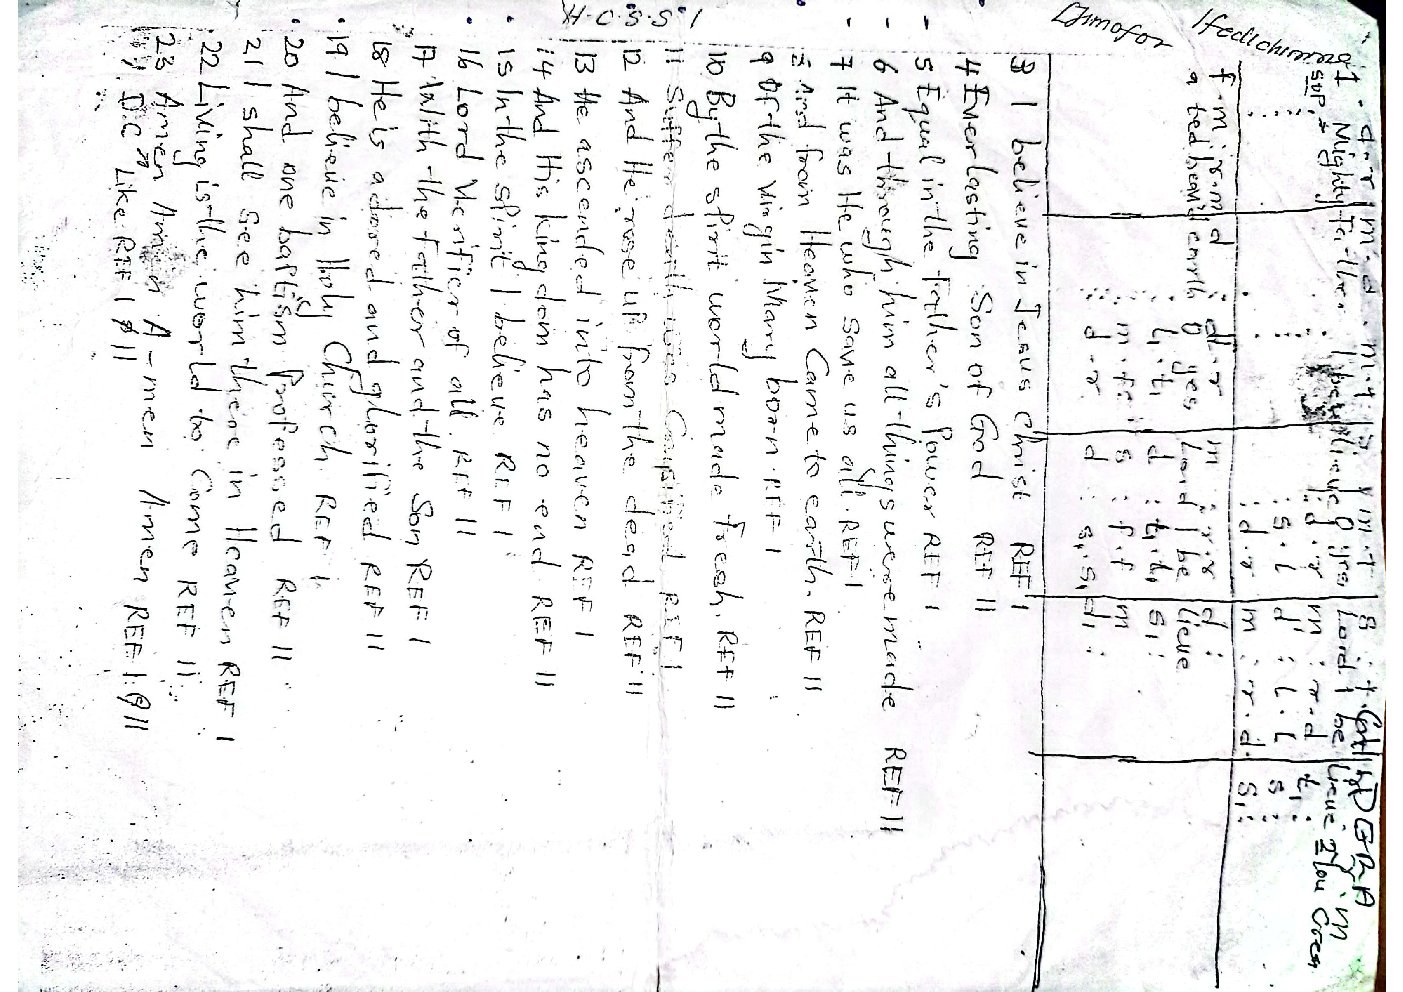 Ifedichimma
Dimofor
I.S.S.O.H
SOP.
Mighty Father I believe O yes, Lord I be lieve in
2 You Crea
f . m : r . m d : d . r m : r . r d :
a ted heaven earth O yes, Lord I be lieve
l₁ . t₁ d : t₁ . t₁ s₁ :
m . f s : f . f m
d . r d : s₁ . s₁ d :
: d . r m : r . d t₁ :
: s . l d' : l . l s :
: d . r m : r . d . s₁ :
3 I believe in Jesus Christ REF I
4 Everlasting Son of God REF II
5 Equal in the father's Power REF I
6 And through him all things were made REF II
7 It was He who save us all. REF I
8 And from Heaven Came to earth. REF II
9 Of the Virgin Mary born. REF I
10 By the spirit world made fresh. REF II
11 Suffered death was REF I
12 And He rose up from the dead REF II
13 He ascended into heaven REF I
14 And His kingdom has no end REF II
15 In the spirit I believe REF I
16 Lord of all. REF II
17 With the father and the Son REF I
18 He is adored and glorified REF II
19 I believe in Holy Church. REF I
20 And one baptism Professed REF II
21 I shall see him there in Heaven REF I
22 Living is the world to Come REF II
23 Amen Amen A-men Amen REF I & II
D.C Like REF I & II